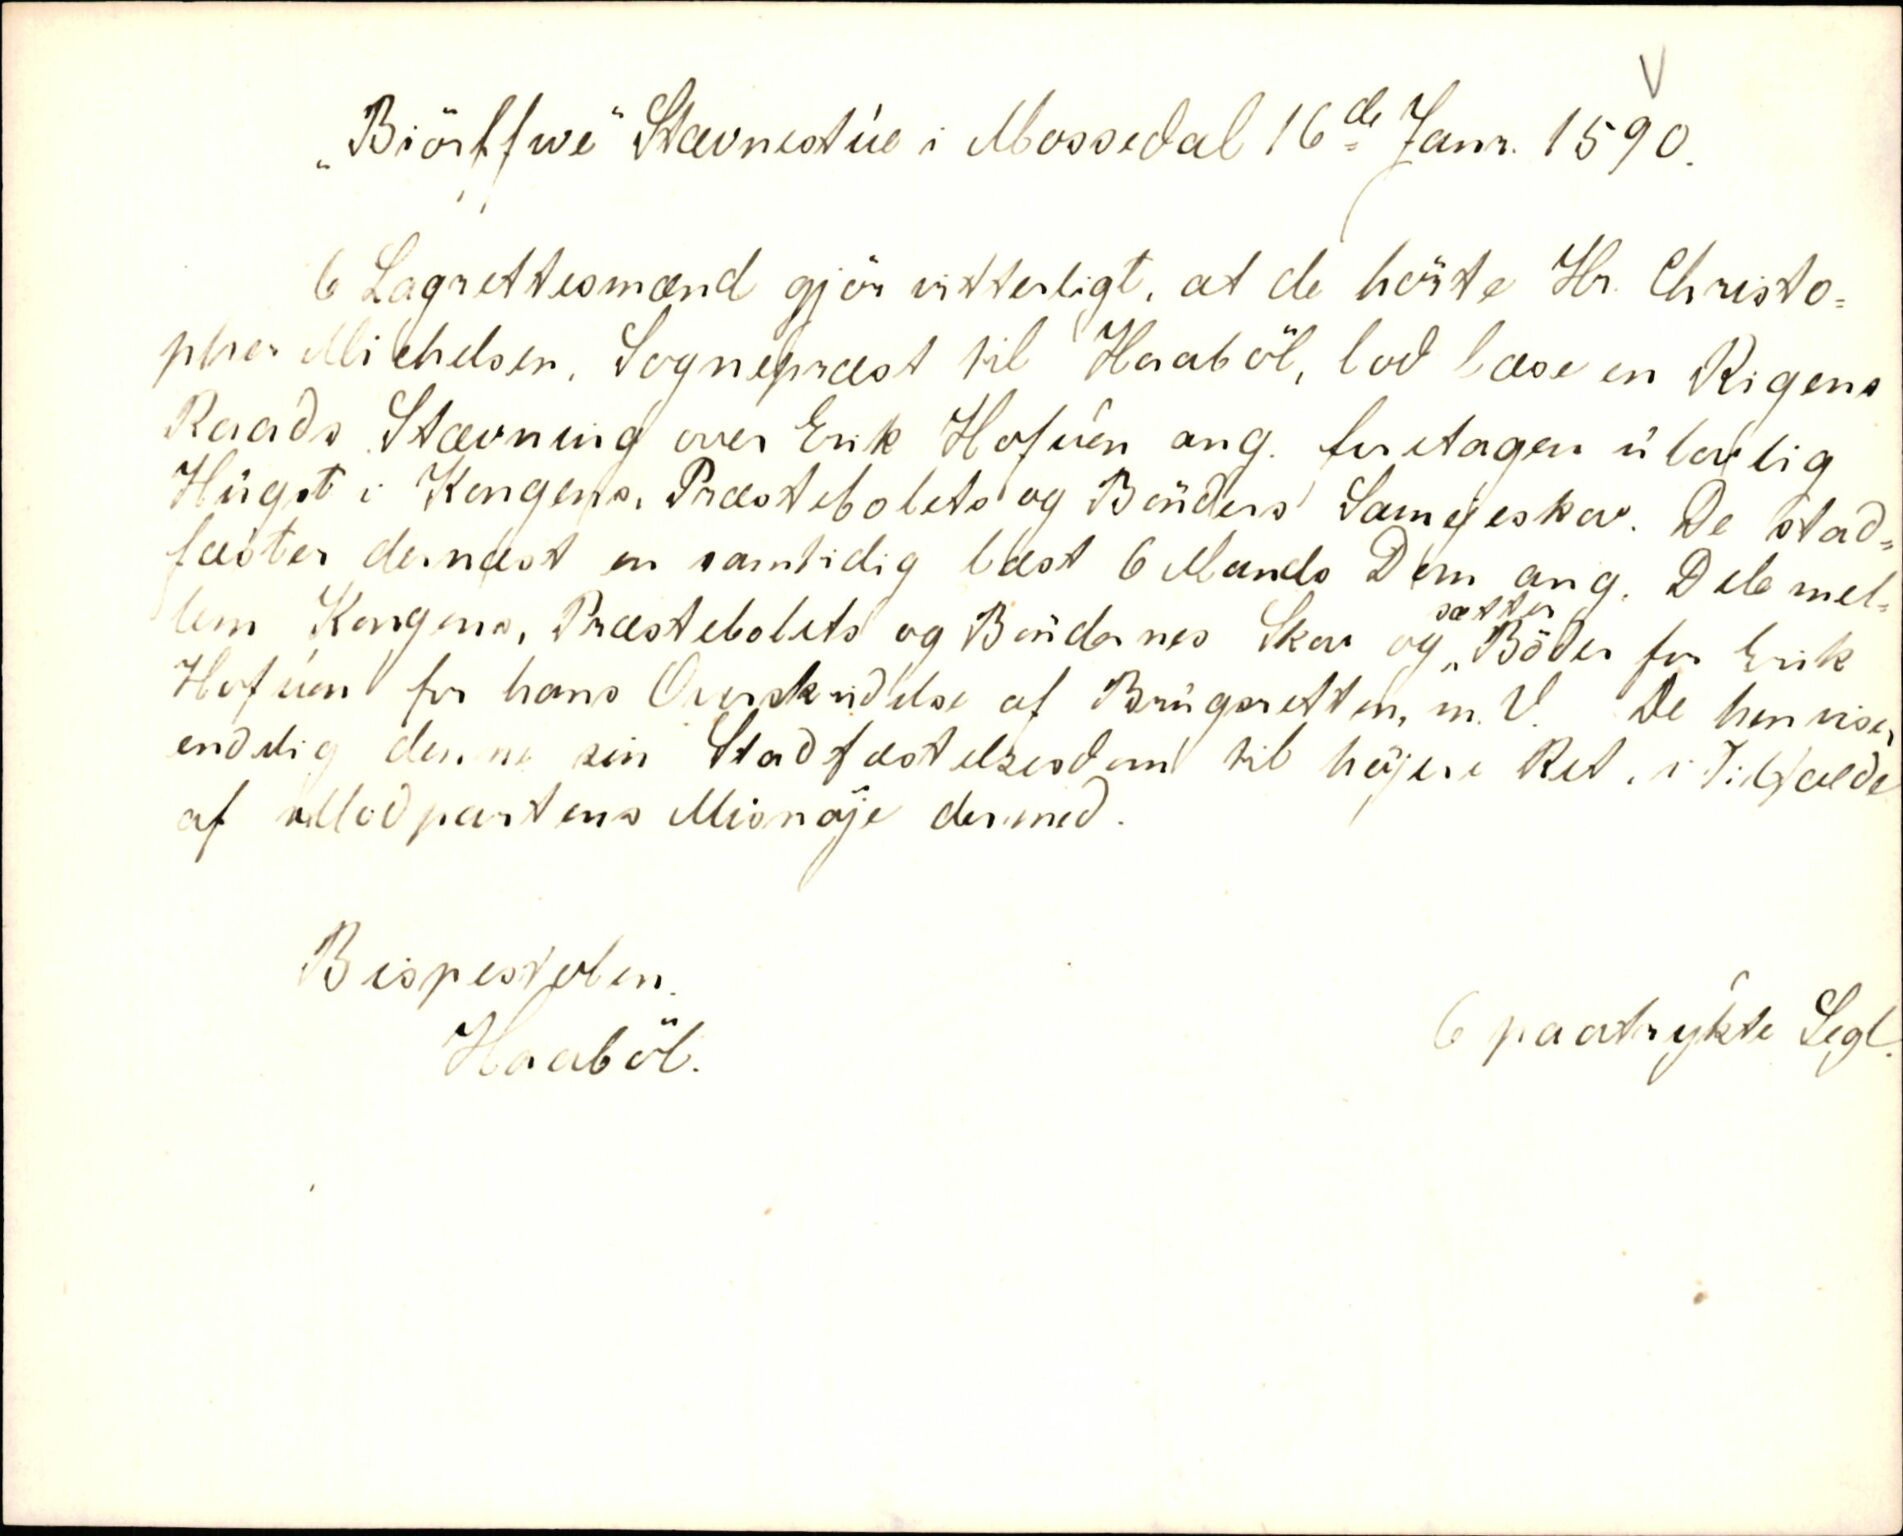 V
„Biörffwe" Stævnestúe i Mossedal 16de Janr. 1590.
6 Lagrettesmænd gjör vitterligt, at de hörte Hr. Christo=
pher Michelsen, Sognepræst til Haaböl, lod læse en Rigens
Raads Stævning over Erik Hofúen ang. foretagen úlovlig
Húgst i Kongens, Præstebolets og Bönders Sameieskov. De stad=
fæster dernæst en samtidig læst 6 Mands Dom ang. Dele mel=
lem Kongens, Præstebolets og Böndernes Skov og sætter Böder for Erik
Hofúen for hans Overskridelse af Brúgsretten, m. V. De henviser
endelig denne sin Stadfæstelsesdom til höjere Ret, i Tilfælde
af Modpartens Misnöje dermed.
Bispestolen.
Haaböl.
6 paatrykte Segl.